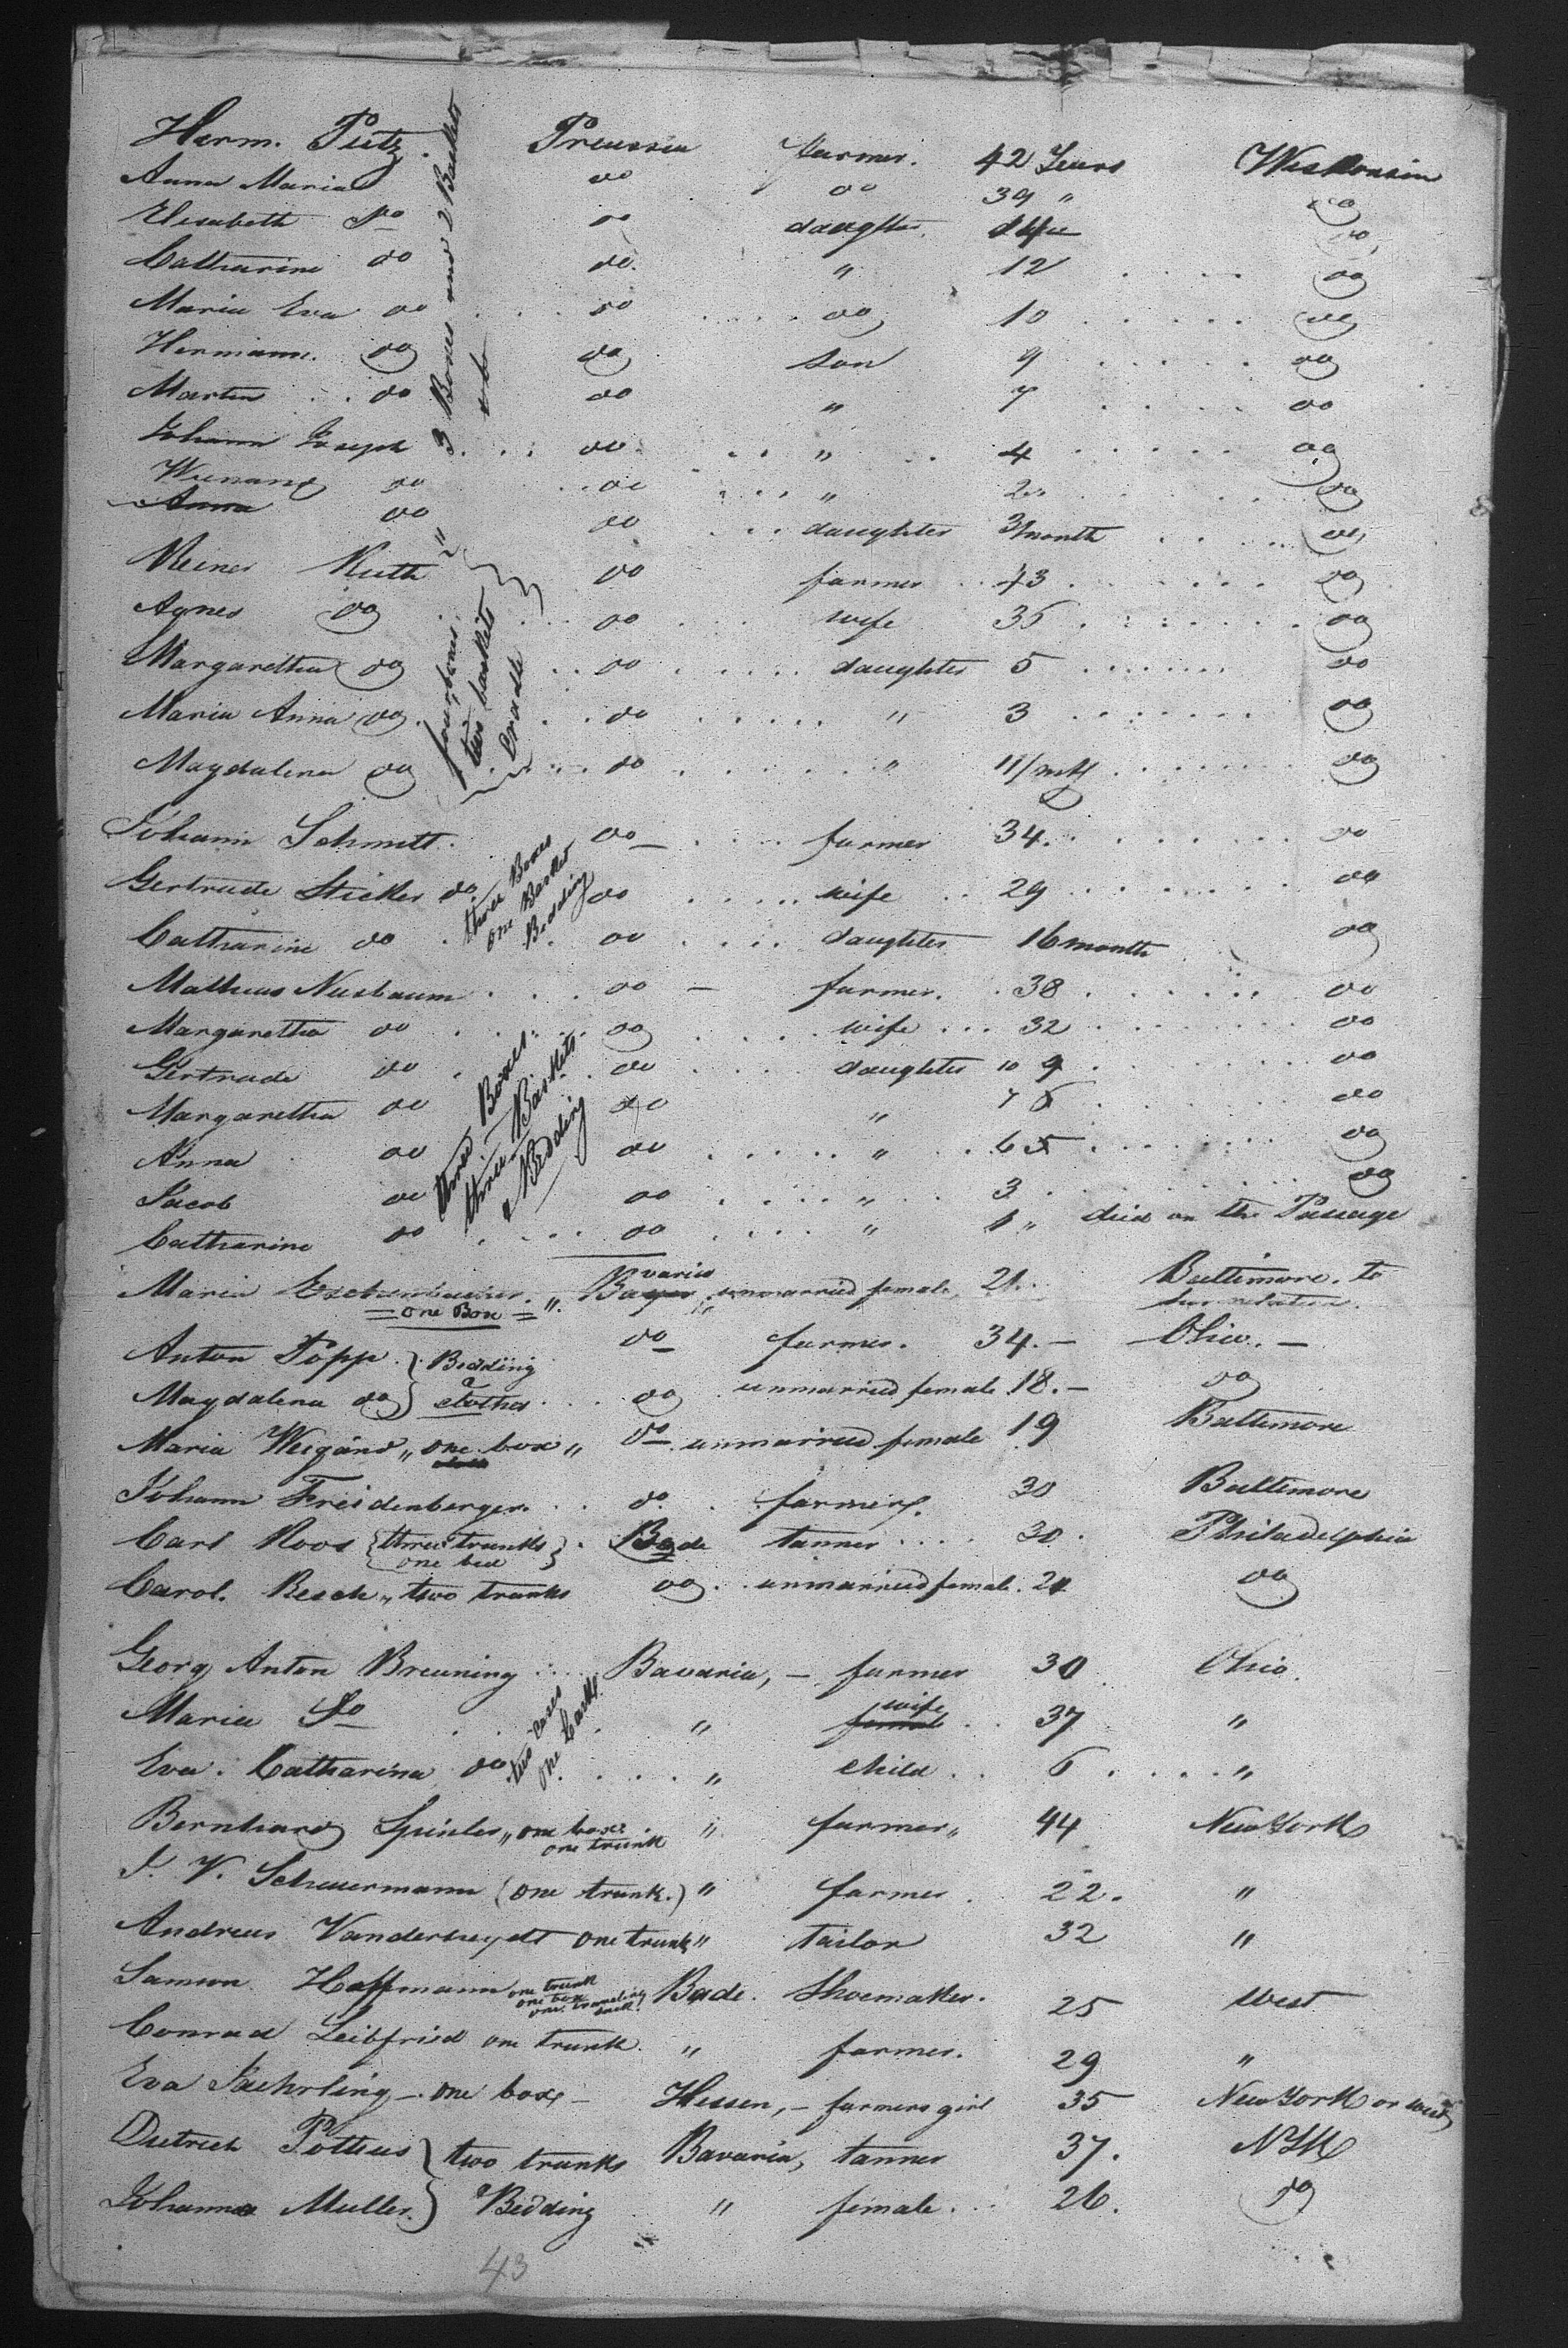 Herm. Putz. Preussia farmer. 42 Years Wiskonsin
Anna Maria do do 39 " do
Elisabeth Do do daughter. do
Catharine do do. " 12 do
Maria Eva do do do 10 do
Hermann. do do son 9 do
Martin do do " 7 do
Johann Joseph do " 4 do
3 Boxes and 2 Baskets
Wienand do do " 2 do
Anna do do daughter 3/month do
Reiner Ruth " do farmer 43 do
Agnes do do wife 35 do
Margaretha do do daughter 5 do
Maria Anna do do " 3 do
Magdalena do do " 11/mth do
four boxes,
two baskets
Cradle
Johann Schmitt. do farmer 34. do
Gertrude Sticker do do wife 29 do
Catharine do do daughter 16 month do
three Boxes
one Basket
Bedding
Matheus Nusbaum do farmer. 38 do
Margaretha do do wife 32 do
Gertrude do do daughter 10 9 do
Margaretha do do " 7 6 do
Anna do do " 6 5 do
Jacob do do " 3 do
Catharine do do " 1 " died on the Passage
three Boxes
three Baskets
Bedding
Maria " Bavaria unmarried female 21. Baltimore. to
= one Box = her relation.
Anton Popp. Bedding do farmer. 34. — Ohio. —
Magdalena do clothes do unmarried female 18. — do
Maria Weigand " one box " do unmarried female 19 Baltimore
Johann Freidenberger. do. farmer. 30 Baltimore
Carl Roos {three trunks} Bade tanner 30 Philadelphia
one bed
Carol. Resch " two trunks do unmarried female. 21 do
Georg Anton Breuning Bavaria, — farmer 30 Ohio.
Maria Do " female wife 37 "
Eva. Catharina do " child 6 "
two cases
one
Bernhard Spinler " one box. " farmer " 44 New York
one trunk
J. V. Scheuermann (one trunk.) " farmer 22. "
Andreas one trunk " tailor 32 "
Samson Hoffmann one trunk Bade. Shoemaker. 25 West
one box
one traveling sack
Conrad Leibfried one trunk. " farmer. 29 "
Eva — one box — Hessen, — farmers girl 35 New York or west
Dietrich two trunks Bavaria, tanner 37. NYk
Johanna Muller. Bedding " female. 26. do
43